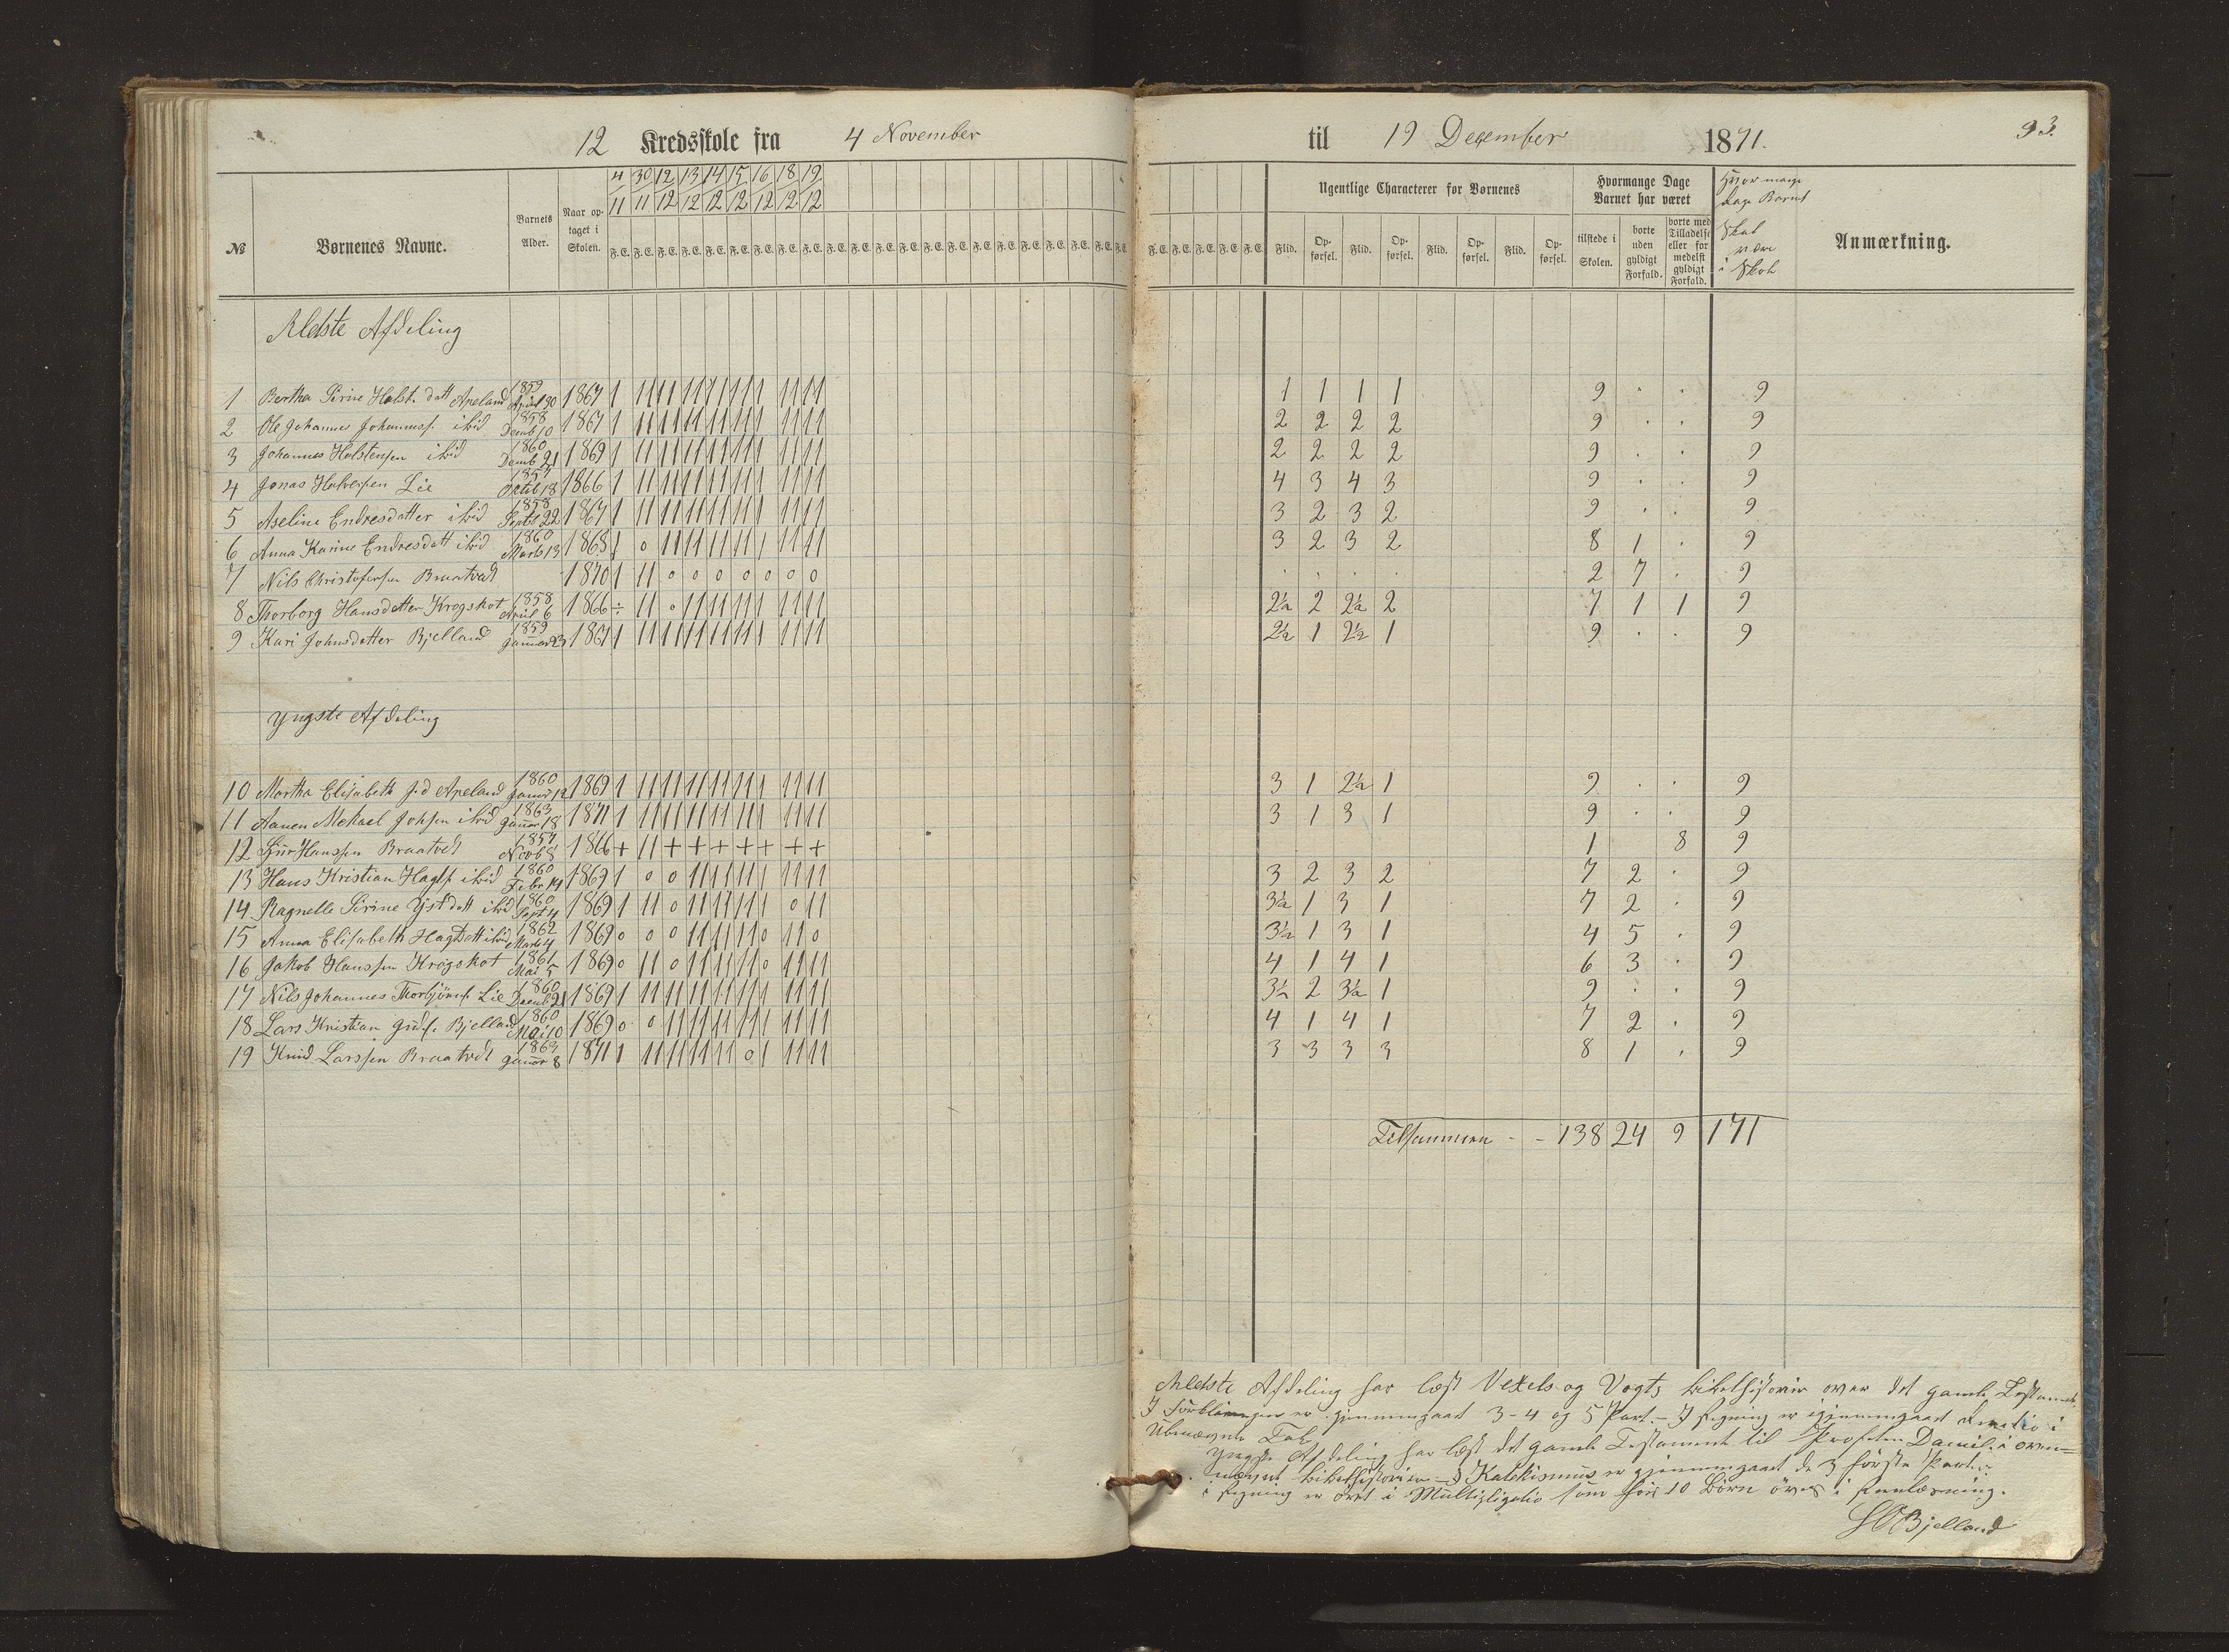 12 Kredsskole fra 4 November til 19 Desember 1871. 93.
№ Børnenes Navne. Barnets Alder. Naar optaget i Skolen. 4/11 30/11 12/12 13/12 14/12 15/12 16/12 18/12 19/12
F.E. F.E. F.E. F.E. F.E. F.E. F.E. F.E. F.E. F.E. F.E. F.E. F.E. F.E. F.E. F.E. F.E. F.E. F.E. F.E. F.E. F.E.
Ugentlige Characterer for Børnenes
Flid. Opførsel. Flid. Opførsel. Flid. Opførsel. Flid. Opførsel.
Hvormange Dage Barnet har været
tilstede i Skolen. borte uden gyldigt Forfald. borte med Tilladelse eller formedelst gyldigt Forfald.
Hvormange Dage Barnet Skal være i Skole
Anmærkning.
Ældste Afdeling
1 Bertha Sirine Holst. datt Apeland 1859 April 30 1867 1 11 11 11 11 11 1 11 11 1 1 1 1 9 . . 9
2 Ole Johannes Johannesf. ibid 1858 Decmb 10 1867 1 11 11 11 11 11 1 11 11 2 2 2 2 9 . . 9
3 Johannes Holstensen ibid 1860 Decmb 21 1869 1 11 11 11 11 11 1 11 11 2 2 2 2 9 . . 9
4 Jonas Halvorsen Lie 1857 Octob 18 1866 1 11 11 11 11 11 1 11 11 4 3 4 3 9 . . 9
5 Aseline Endresdatter ibid 1858 Septb 22 1867 1 11 11 11 11 11 1 11 11 3 2 3 2 9 . . 9
6 Anna Karine Endresdatt ibid 1860 Marts 13 1868 1 0 11 11 11 11 1 11 11 3 2 3 2 8 1 . 9
7 Nils Christofersen Braatvedt 1870 1 11 0 0 0 0 0 0 0 . . . . 2 7 . 9
8 Thorborg Hansdatter Krogskot 1858 April 6 1866 ÷ 11 0 11 11 11 1 11 11 2½ 2 2½ 2 7 1 1 9
9 Kari Johnsdatter Bjelland 1859 Januar 23 1867 1 11 11 11 11 11 1 11 11 2½ 1 2½ 1 9 . . 9
Yngste Afdeling
10 Martha Elisabeth J.d Apeland 1860 Januar 12 1869 1 11 11 11 11 11 1 11 11 3 1 2½ 1 9 . . 9
11 Aanen Mekael Johsen ibid 1863 Januar 18 1871 1 11 11 11 11 11 1 11 11 3 1 3 1 9 . . 9
12 Hanssen Braatvedt 1857 Novb 8 1866 + 11 + + + + + + + 1 8 9
13 Hans Kristian Hagts. ibid 1860 Febr 14 1869 1 0 0 11 11 11 1 11 11 3 2 3 2 7 2 . 9
14 Ragnelle Sirine datt ibid 1860 Sept 4 1869 1 11 0 11 11 11 1 0 11 3½ 1 3 1 7 2 . 9
15 Anna Elisabeth Hagtdatt ibid 1862 Marts 4 1869 0 0 0 11 11 11 0 11 0 3½ 1 3 1 4 5 . 9
16 Jakob Hanssen Krogskot 1861 Mai 5 1869 0 11 0 11 11 11 0 11 11 4 1 4 1 6 3 . 9
17 Nils Johannes Thorbjörnsf. Lie 1860 Decmb 21 1869 1 11 11 11 11 11 1 11 11 3½ 2 3½ 1 9 . . 9
18 Lars Kristian Bjelland 1860 Mai 10 1869 0 0 11 11 11 11 1 11 11 4 1 4 1 7 2 . 9
19 Knud Larssen Braatvedt 1863 Januar 8 1871 1 11 11 11 11 0 1 11 11 3 3 3 3 8 1 . 9
Tilsammen - - 138 24 9 171
Ældste Afdeling har læst Vexels og Vogts bibelhistorier over det gamle Testament.
I Forklaringen er gjennemgaaet 3-4 og 5 Part. - I regning er igjennemgaaet i
Ubenævnte Tal
Yngste Afdeling har læst det gamle Testament til Profeten Daniel i oven=
nævnte bibelhistorier - I Katekismus er gjennemgaaet de 3 første Parter
i regning er øvet i Multiplicatio som for 10 Børn øves i Indlæsning.
Bjelland